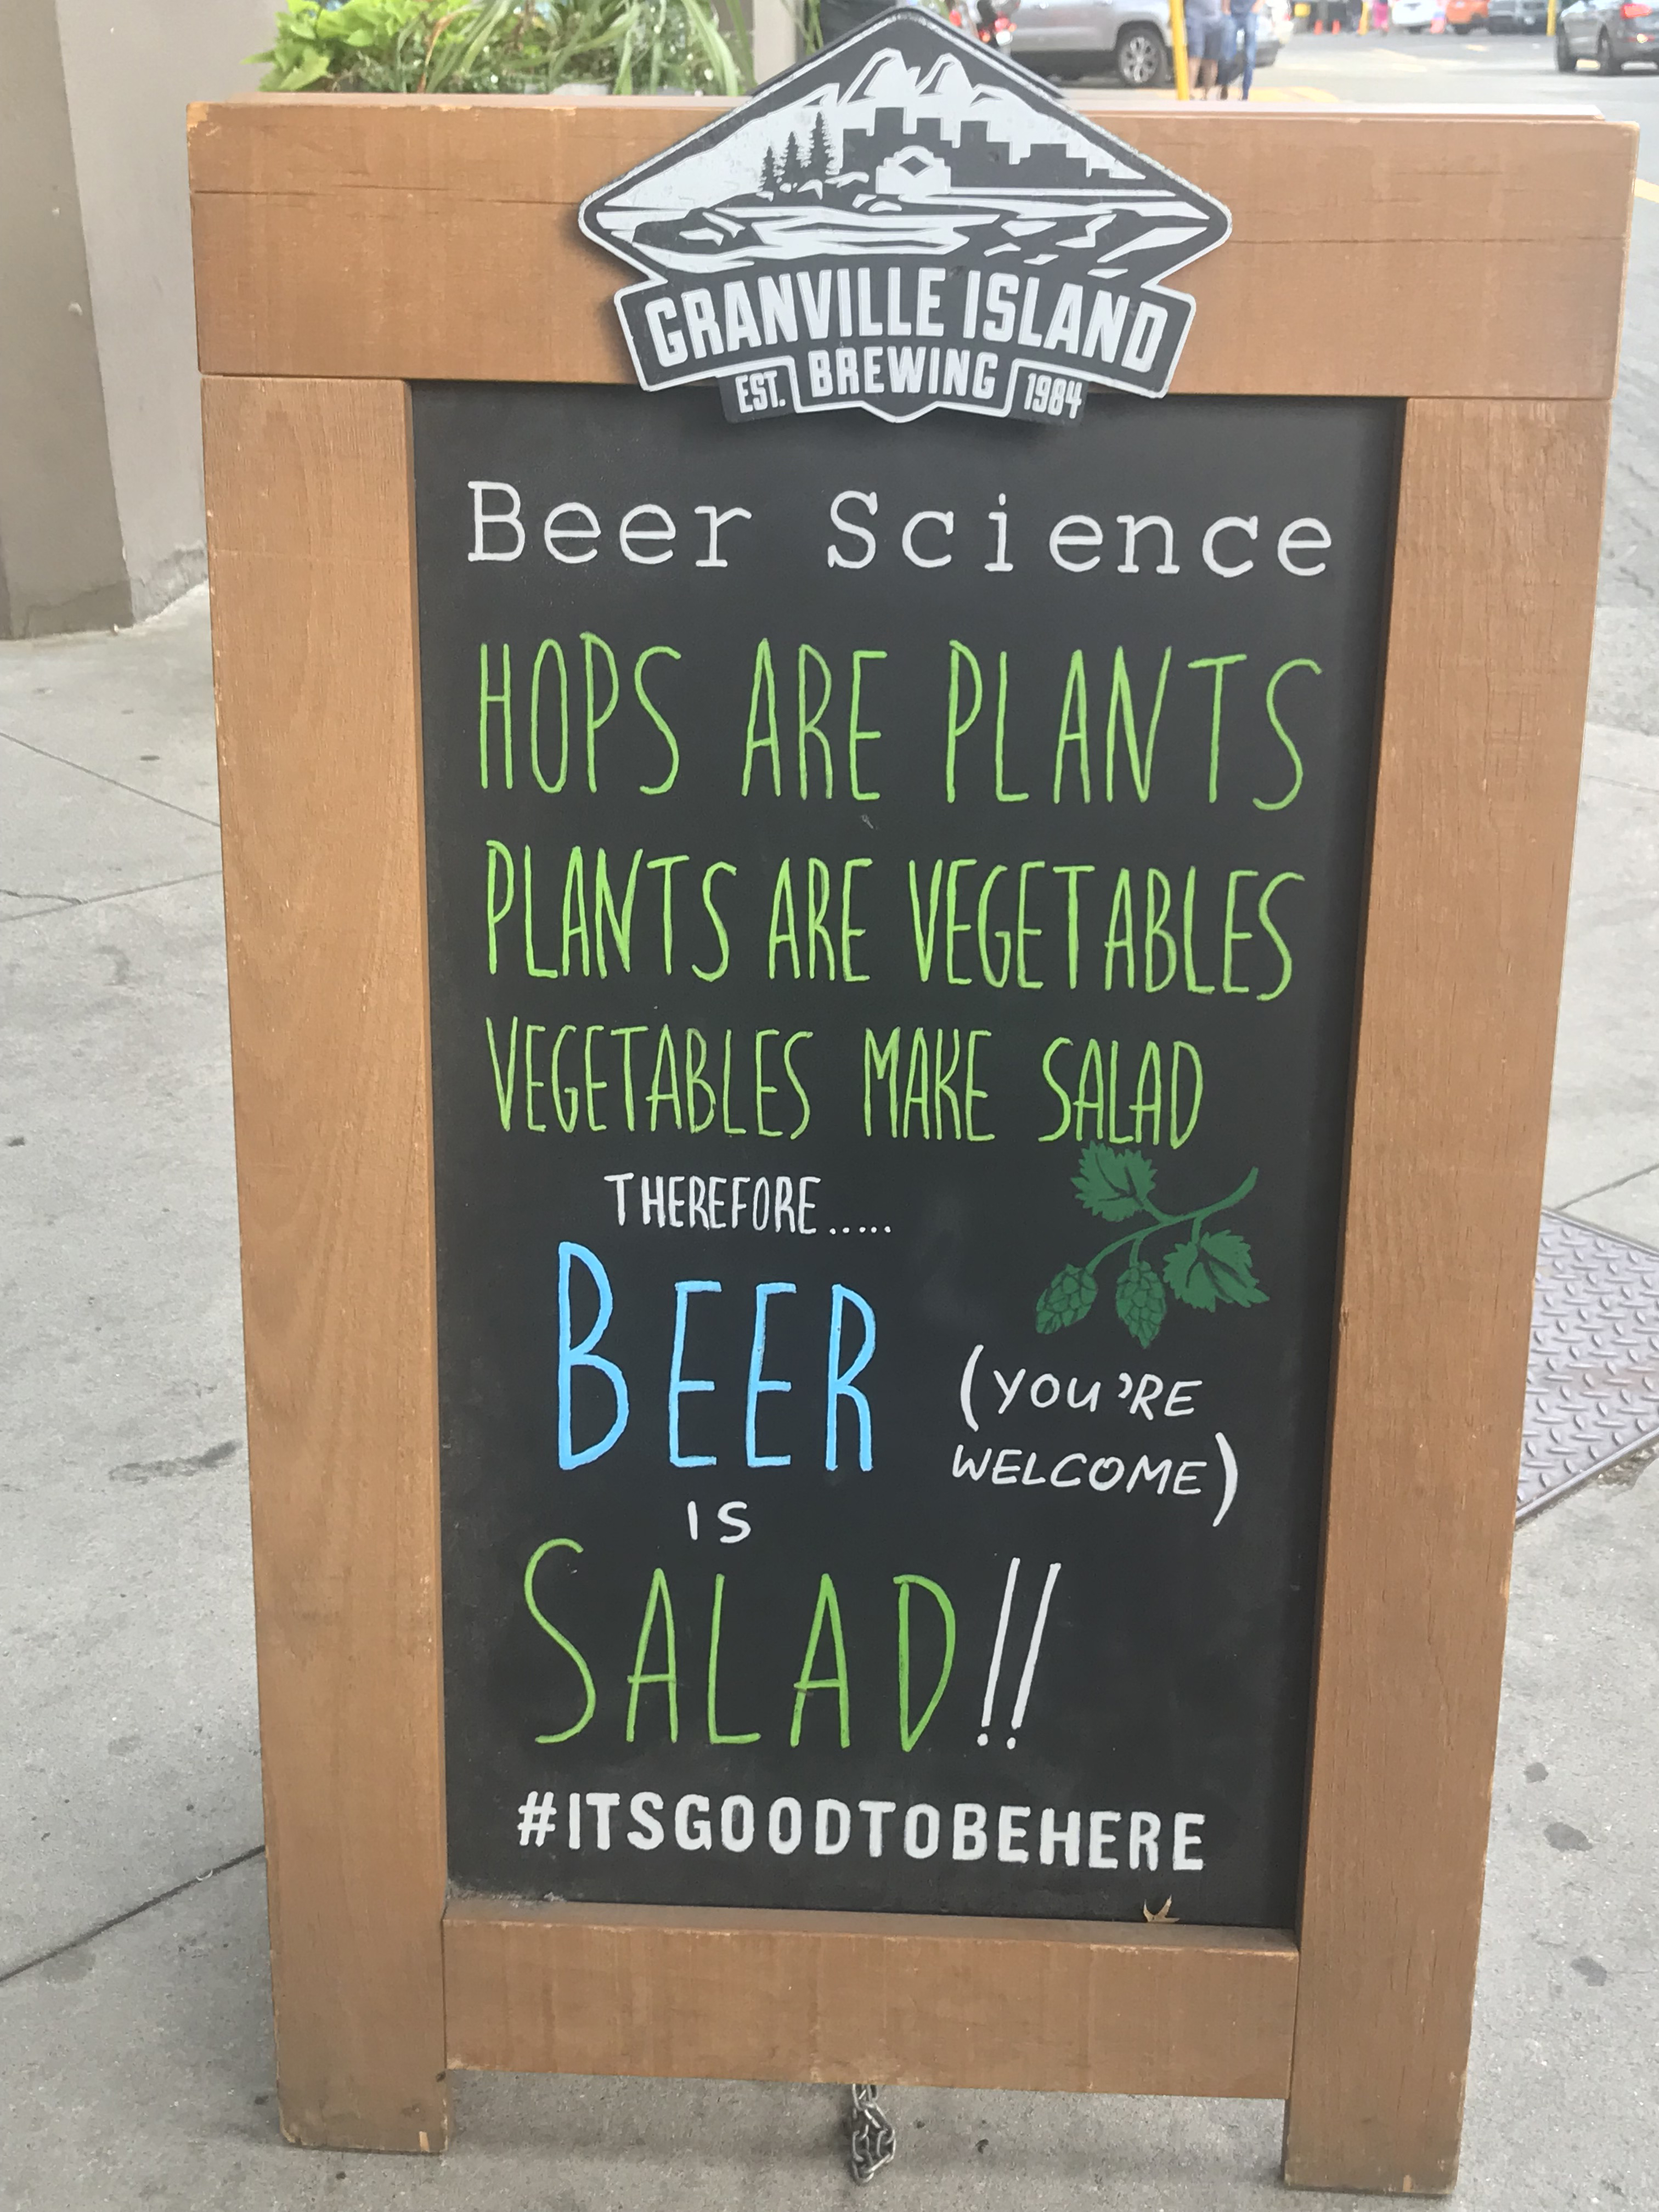 GRANVILLE ISLAND
EST. BREWING 1984
Beer Science
HOPS ARE PLANTS
PLANTS ARE VEGETABLES
VEGETABLES MAKE SALAD
THEREFORE.....
BEER
(YOU'RE
WELCOME)
IS
SALAD!!
#ITSGOODTOBEHERE